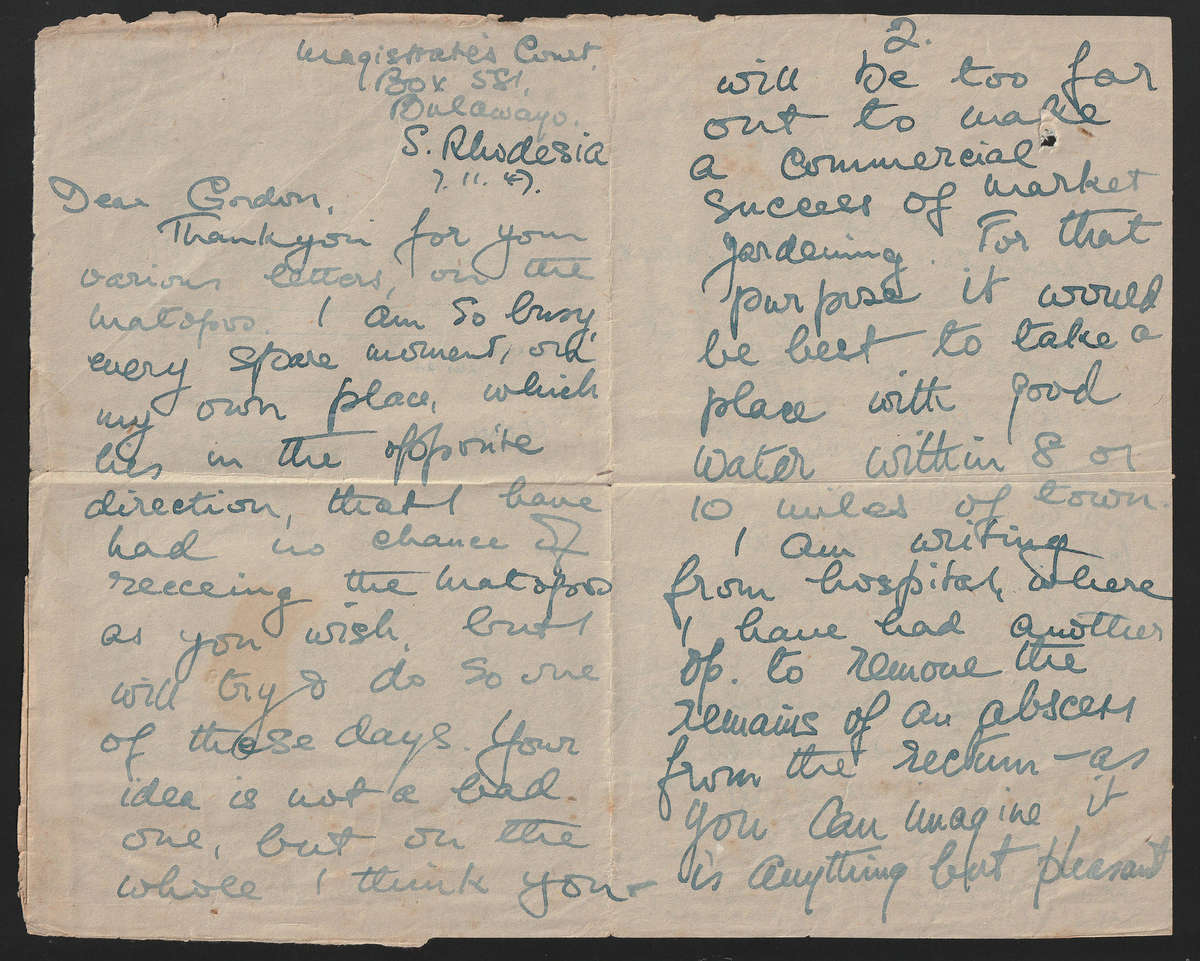 Magistrate's Court.
Box 551,
Bulawayo.
S. Rhodesia
7. 11. 47.
Dear Gordon,
Thankyou for your
various letters, on the
Matopos. I am so busy,
every spare moment, on
my own place, which
lies in the opposite
direction, that I have
had no chance of
recceing the Matopos
as you wish, but I
will try & do so one
of these days. Your
idea is not a bad
one, but on the
whole I think you
2.
will be too far
out to make
a commercial
success of market
gardening. For that
purpose it would
be best to take a
place with good
water within 8 or
10 miles of town.
I am writing
from hospital, where
I have had another
op. to remove the
remains of an abscess
from the rectum – as
you can imagine it
is anything but pleasant